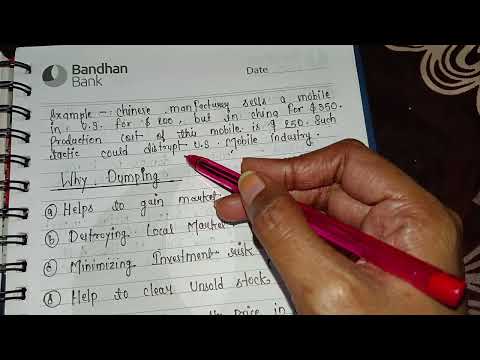 Bandhan
Bank
Date
Example - Chinese manufactury sells a mobile
in U.S. for $ 200, but in china for $350.
Production cost of this mobile is $ 250. Such
tactic could distrupt U.S Mobile industry.
Why Dumping
(a) Helps to gain market
(b) Destroying Local Market
(c) Minimizing Investment risk
(d) Help to clear Unsold stock
Price in